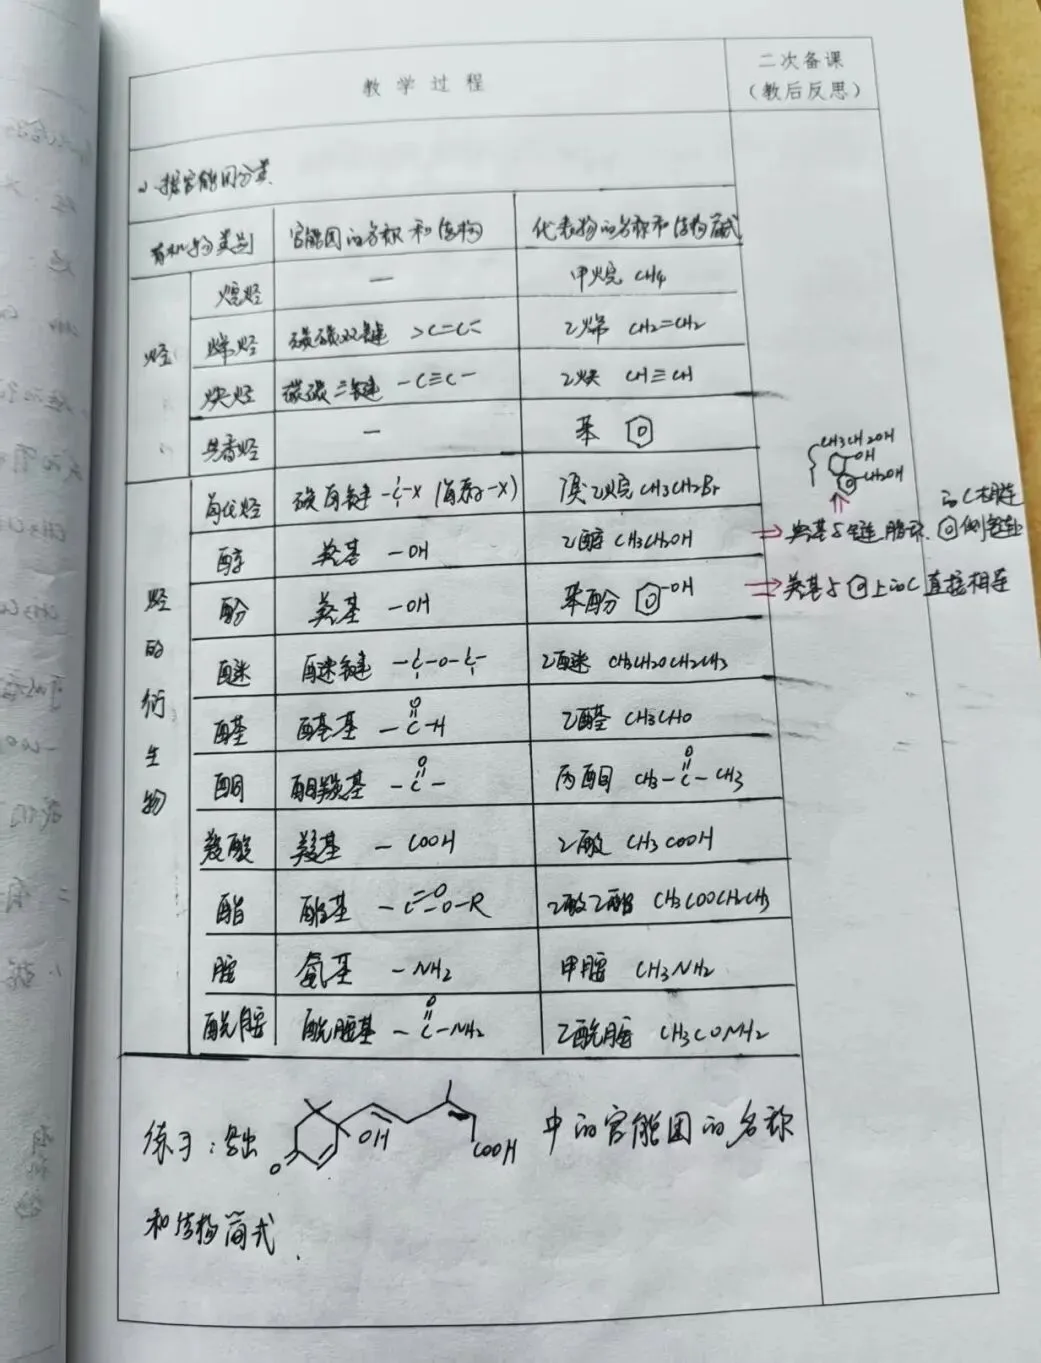 教学过程
二次备课
(教后反思)
2、按官能团分类
有机物类别 官能团的名称和结构 代表物的名称和结构简式
烃
烷烃 — 甲烷 CH4
烯烃 碳碳双键 >C=C< 乙烯 CH2=CH2
炔烃 碳碳三键 -C≡C- 乙炔 CH≡CH
芳香烃 — 苯
烃的衍生物
卤代烃 碳卤键 -C-X (卤素 -X) 溴乙烷 CH3CH2Br
醇 羟基 -OH 乙醇 CH3CH2OH
酚 羟基 -OH 苯酚 -OH
醚 醚键 -C-O-C- 乙醚 CH3CH2OCH2CH3
醛 醛基 -C(=O)-H 乙醛 CH3CHO
酮 酮羰基 -C(=O)- 丙酮 CH3-C(=O)-CH3
羧酸 羧基 -COOH 乙酸 CH3COOH
酯 酯基 -C(=O)-O-R 乙酸乙酯 CH3COOCH2CH3
胺 氨基 -NH2 甲胺 CH3NH2
酰胺 酰胺基 -C(=O)-NH2 乙酰胺 CH3CONH2
CH3CH2OH
OH
CH2OH
⇒ 羟基与链 脂环、侧链上
的C相连
⇒ 羟基与 上的C直接相连
练习:写出 O OH COOH 中的官能团的名称
和结构简式.